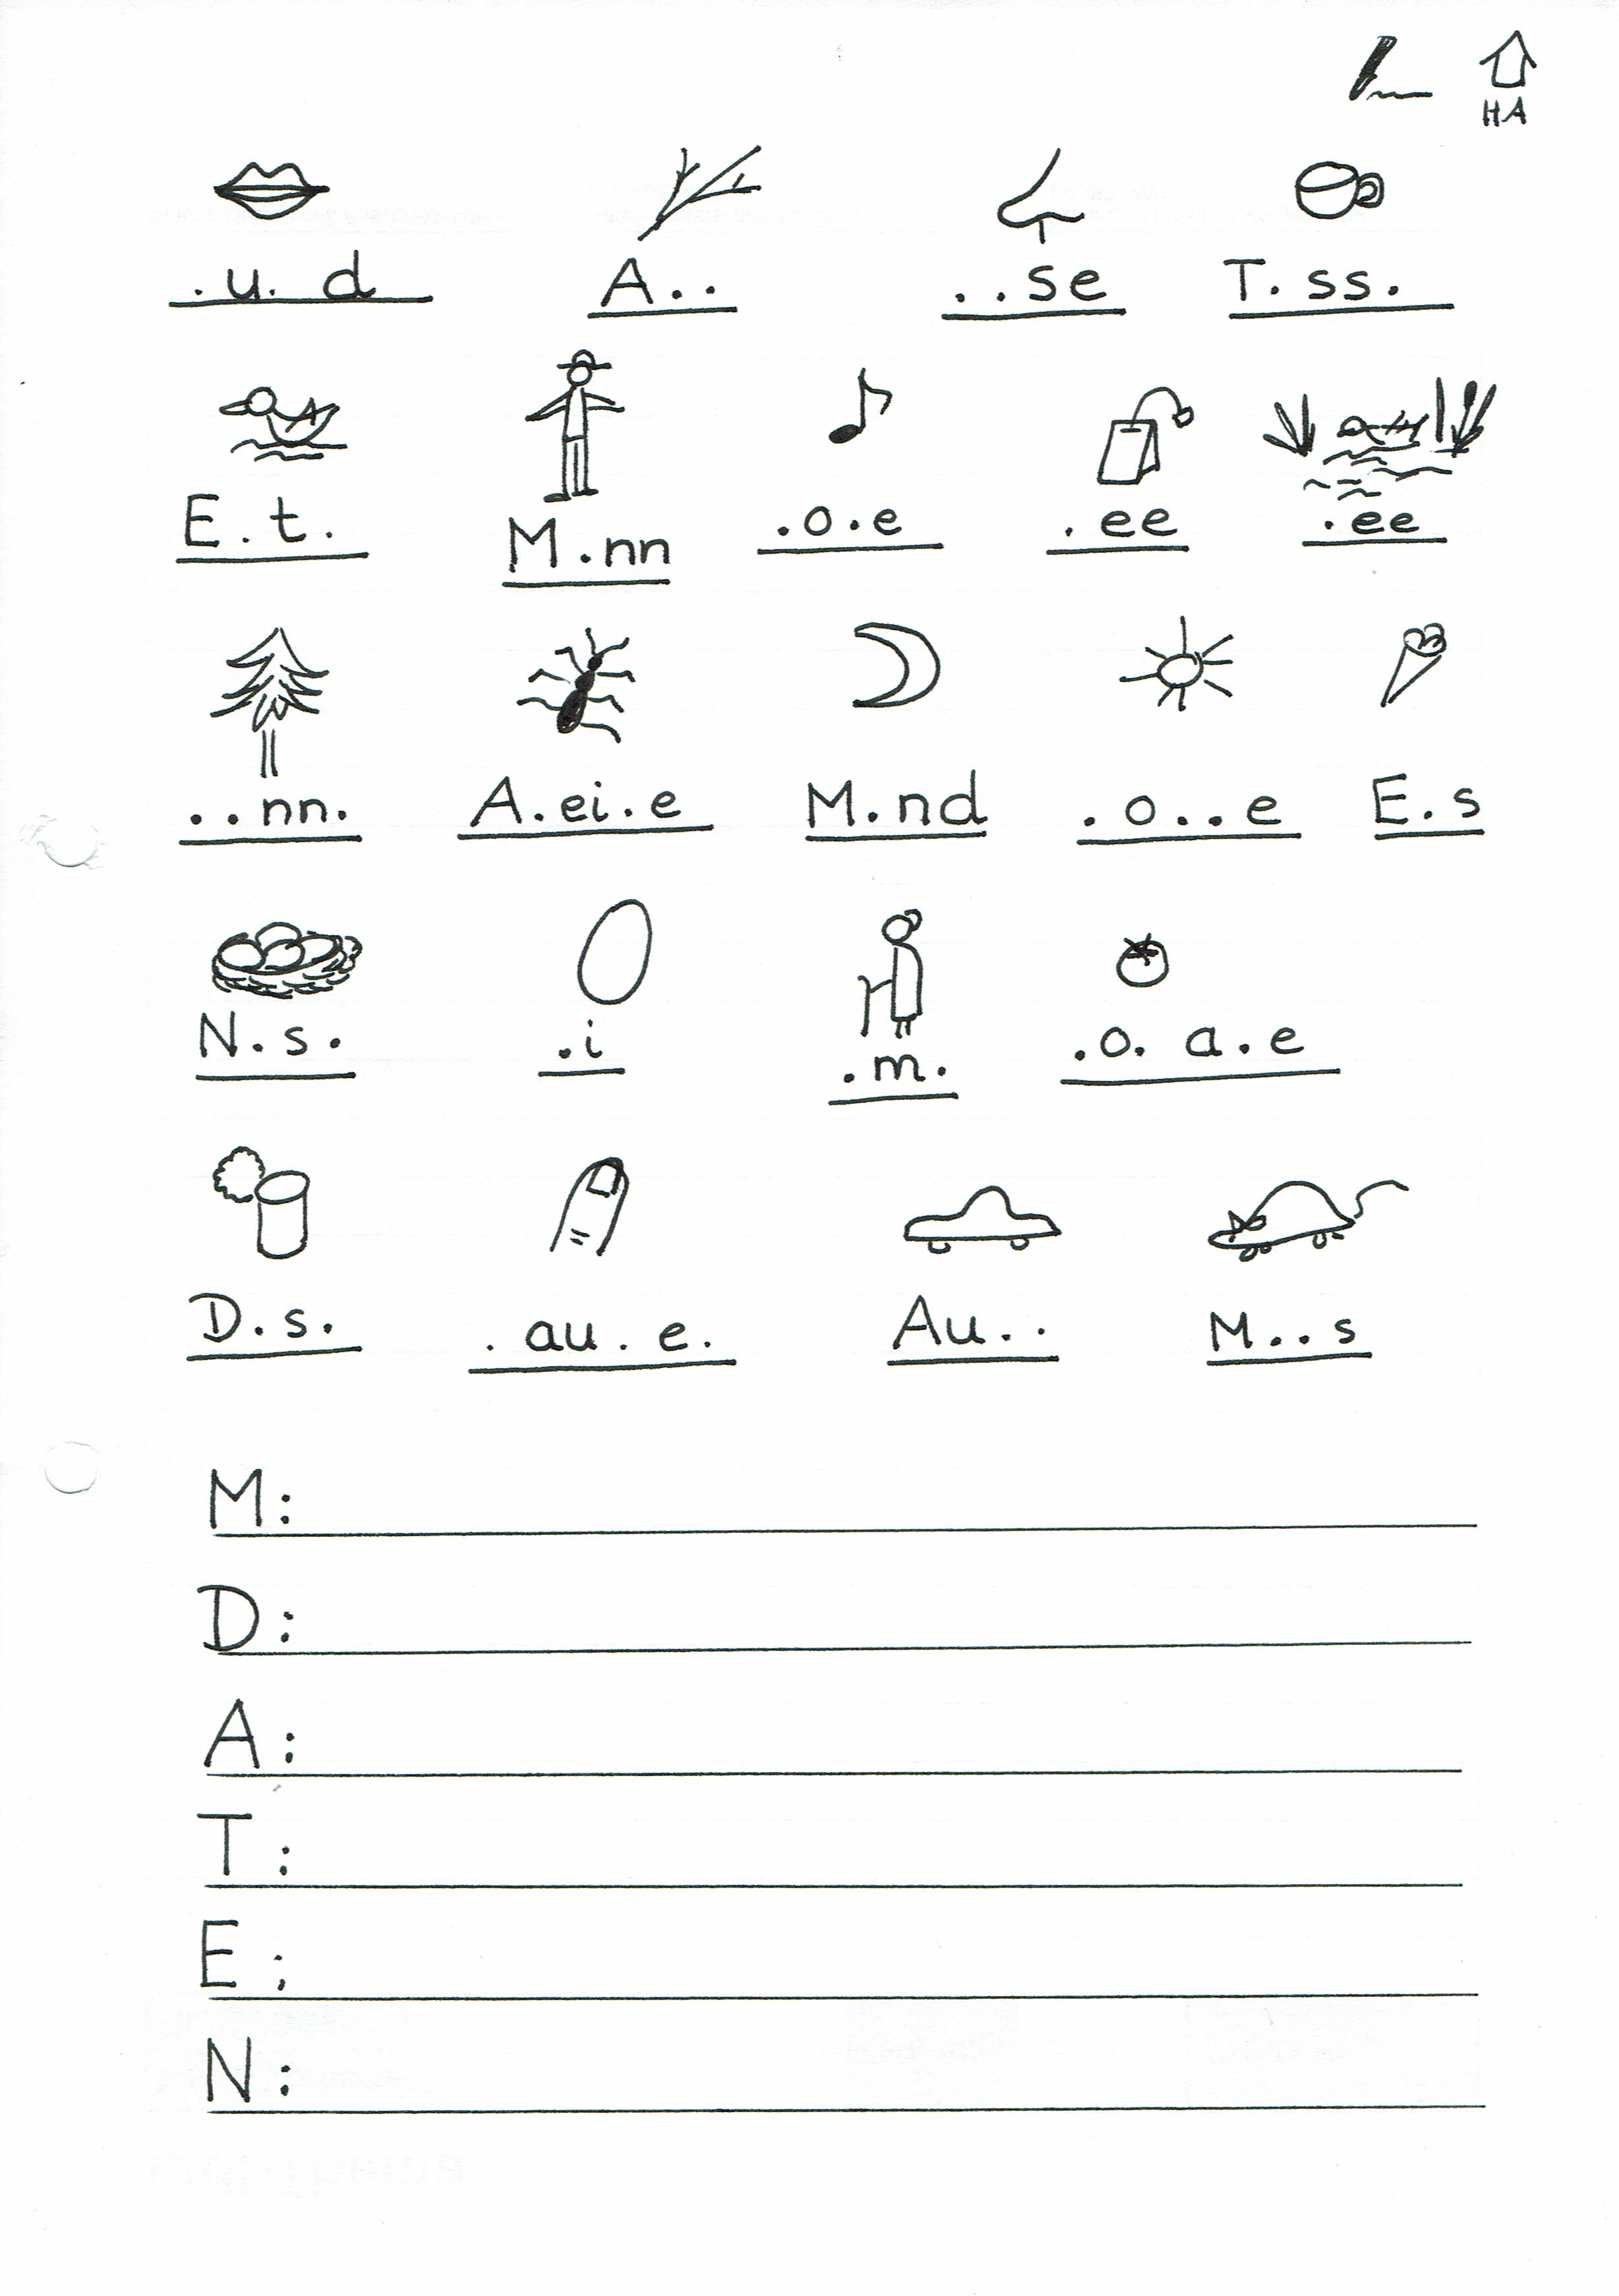 HA
.u. d A.. ..se T.ss.
E.t. M.nn .o.e .ee .ee
..nn. A.ei.e M.nd .o..e E.s
N.s. .i .m. .o. a.e
D.s. .au.e. Au.. M..s
M:
D:
A:
T:
E:
N: